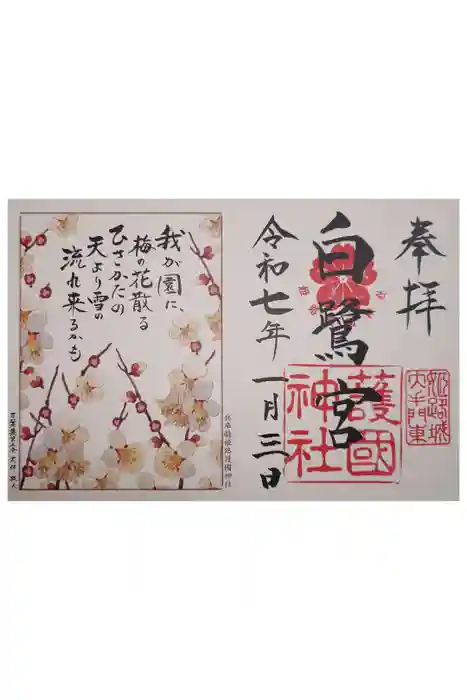 奉拝
白鷺宮
令和七年 一月三日
護國
神社
姫路城
大手門東
我が園に、
梅の花散る
ひさかたの
天より雪の
流れ来るかも
兵庫縣姫路護國神社
万葉集巻五 大伴旅人